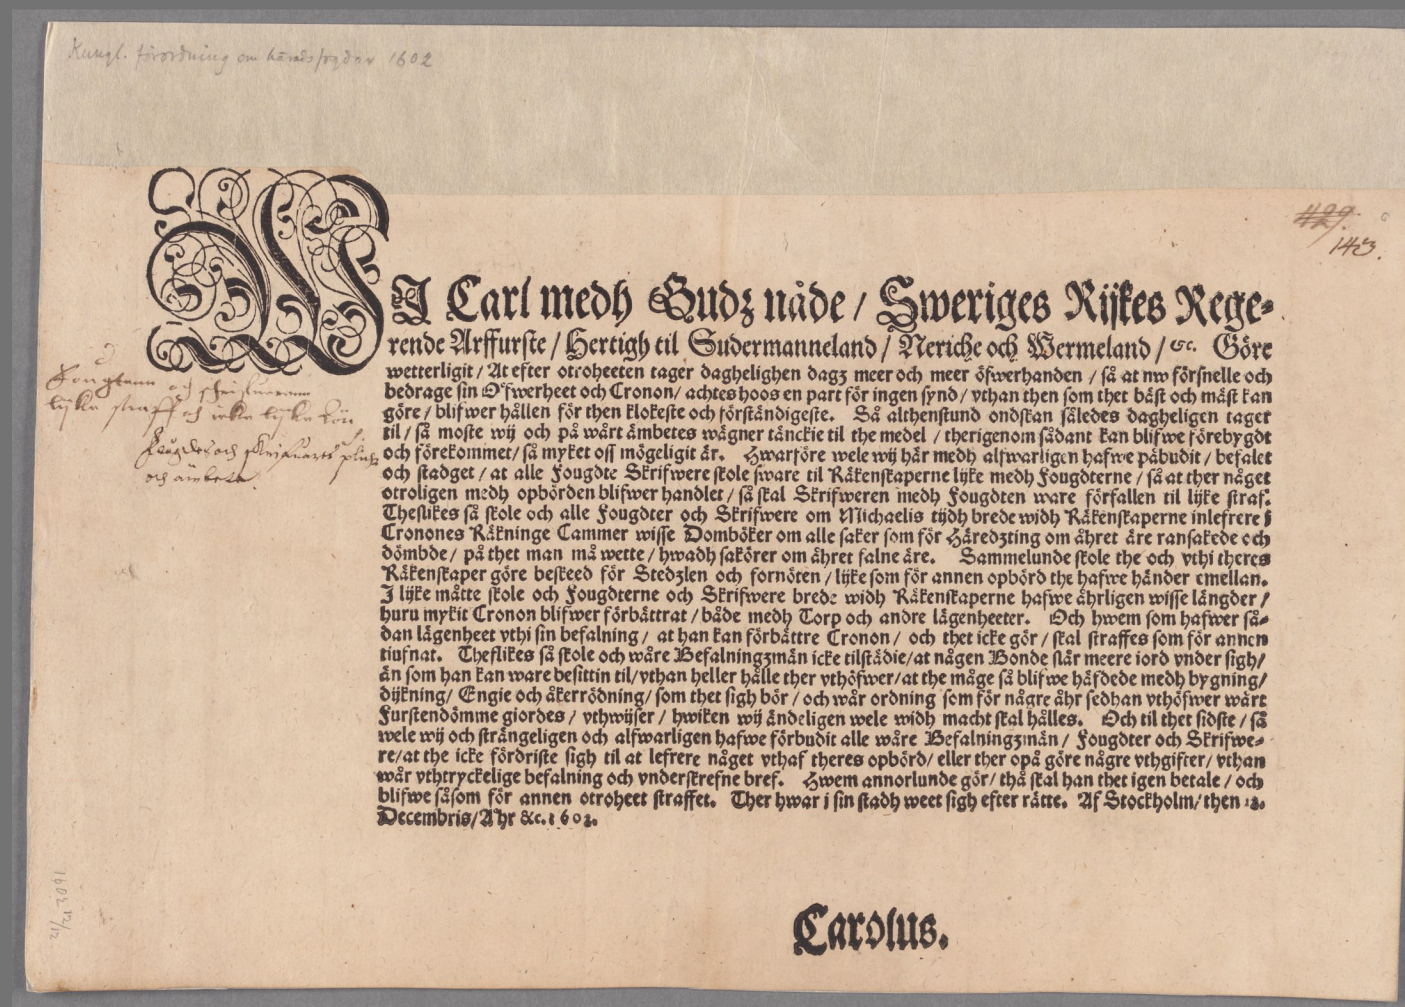 Kungl. förordning om häradsfogdar 1602
429.
143.
WJ Carl medh Gudz nåde / Sweriges Rijkes Rege-
rende Arffurste / Hertigh til Sudermanneland / Neriche och Wermeland / etc. Göre
wetterligit / At efter otroheeten tager daghelighen dagz meer och meer öfwerhanden / så at nw försnelle och
bedrage sin Öfwerheet och Cronon / achtes hoos en part för ingen synd / vthan then som thet bäst och mäst kan
göre / blifwer hållen för then klokeste och förståndigeste. Så althenstund ondskan således dagheligen tager
til / så moste wij och på wårt ämbetes wägner tänckie til the medel / therigenom sådant kan blifwe förebygdt
och förekommet / så myket oss mögeligit är. Hwarföre wele wij här medh alfwarligen hafwe påbudit / befalet
och stadget / at alle Fougdte Skrifwere skole sware til Räkenskaperne lijke medh Fougdterne / så at ther något
otroligen medh opbörden blifwer handlet / så skal Skrifweren medh Fougdten ware förfallen til lijke straf.
Theslikes så skole och alle Fougdter och Skrifwere om Michaelis tijdh brede widh Räkenskaperne inlefrere i
Cronones Räkninge Cammer wisse Domböker om alle saker som för Häredzting om åhret äre ransakede och
dömbde / på thet man må wette / hwadh sakörer om åhret falne äre. Sammelunde skole the och vthi theres
Räkenskaper göre beskeed för Stedzlen och fornöten / lijke som för annen opbörd the hafwe händer emellan.
J lijke måtte skole och Fougdterne och Skrifwere brede widh Räkenskaperne hafwe åhrligen wisse längder /
huru mykit Cronon blifwer förbättrat / både medh Torp och andre lägenheeter. Och hwem som hafwer så-
dan lägenheet vthi sin befalning / at han kan förbättre Cronon / och thet icke gör / skal straffes som för annen
tiufnat. Theslikes så skole och wåre Befalningzmän icke tilstädie / at någen Bonde slår meere iord vnder sigh /
än som han kan ware besittin til / vthan heller hålle ther vthöfwer / at the måge så blifwe häfdede medh bygning /
dijkning / Engie och åkerrödning / som thet sigh bör / och wår ordning som för någre åhr sedhan vthöfwer wårt
Furstendömme giordes / vthwijser / hwiken wij ändeligen wele widh macht skal hålles. Och til thet sidste / så
wele wij och strängeligen och alfwarligen hafwe förbudit alle wåre Befalningzmän / Fougdter och Skrifwe-
re / at the icke fördriste sigh til at lefrere något vthaf theres opbörd / eller ther opå göre någre vthgifter / vthan
wår vthtryckelige befalning och vnderskrefne bref. Hwem annorlunde gör / thå skal han thet igen betale / och
blifwe såsom för annen otroheet straffet. Ther hwar i sin stadh weet sigh efter rätte. Af Stockholm / then 12.
Decembris / Åhr &c. 1602.
lijke straff och icke lijke
och ämbete.
Carolus.
1602 12/12